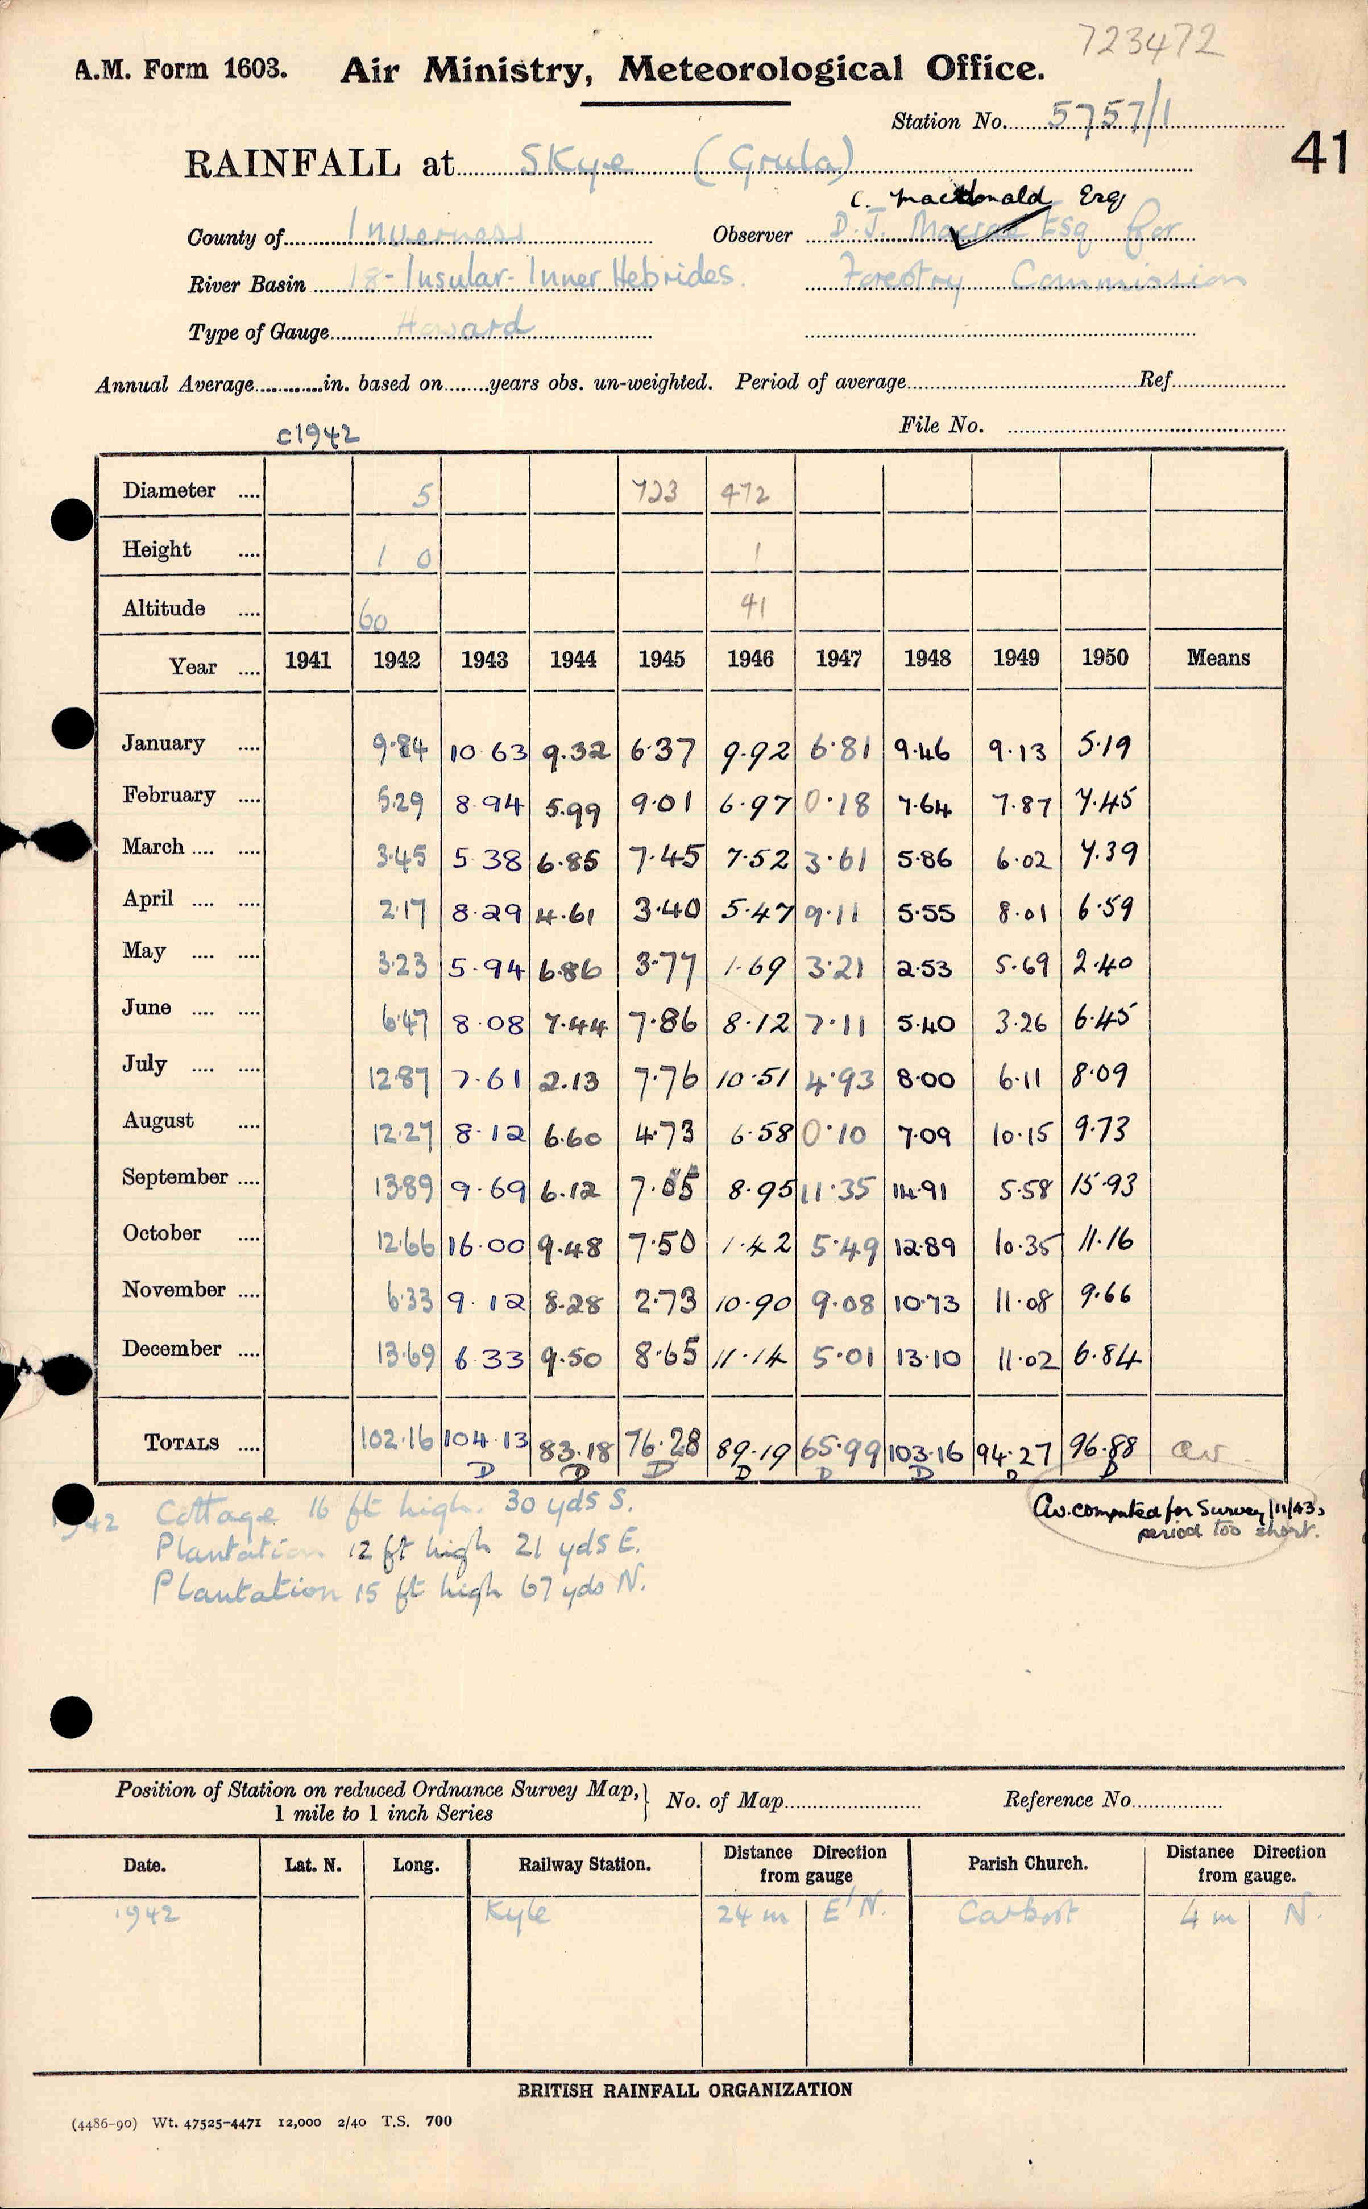 723472
A.M. Form 1603. Air Ministry, Meteorological Office.
Station No. 5757/1
41
RAINFALL at Skye (Grula)
C. MacDonald Esq
County of Inverness Observer D.J. Macrae Esq for
River Basin 18 - Insular - Inner Hebrides. Forestry Commission
Type of Gauge Howard
Annual Average in. based on years obs. un-weighted. Period of average Ref
c1942 File No.
Diameter 5 723 472
Height 1 0 1
Altitude 60 41
Year 1941 1942 1943 1944 1945 1946 1947 1948 1949 1950 Means
January 9.84 10.63 9.32 6.37 9.92 6.81 9.46 9.13 5.19
February 5.29 8.94 5.99 9.01 6.97 0.18 7.64 7.87 7.45
March 3.45 5.38 6.85 7.45 7.52 3.61 5.86 6.02 7.39
April 2.17 8.29 4.61 3.40 5.47 9.11 5.55 8.01 6.59
May 3.23 5.94 6.86 3.77 1.69 3.21 2.53 5.69 2.40
June 6.47 8.08 7.44 7.86 8.12 7.11 5.40 3.26 6.45
July 12.87 7.61 2.13 7.76 10.51 4.93 8.00 6.11 8.09
August 12.27 8.12 6.60 4.73 6.58 0.10 7.09 10.15 9.73
September 13.89 9.69 6.12 7.05 8.95 11.35 14.91 5.58 15.93
October 12.66 16.00 9.48 7.50 1.42 5.49 12.89 10.35 11.16
November 6.33 9.12 8.28 2.73 10.90 9.08 10.73 11.08 9.66
December 13.69 6.33 9.50 8.65 11.14 5.01 13.10 11.02 6.84
TOTALS 102.16 104.13 83.18 76.28 89.19 65.99 103.16 94.27 96.88 av.
D D D D D D D D
1942 Cottage 16 ft high. 30 yds S.
Plantation 12 ft high 21 yds E.
Plantation 15 ft high 67 yds N.
Av. computed for Survey /11/43,
period too short.
Position of Station on reduced Ordnance Survey Map, 1 mile to 1 inch Series No. of Map Reference No.
Date. Lat. N. Long. Railway Station. Distance Direction from gauge Parish Church. Distance Direction from gauge.
1942 Kyle 24 m E'N. Carbost 4 m N.
BRITISH RAINFALL ORGANIZATION
(4486-90) Wt. 47525-4471 12,000 2/40 T.S. 700